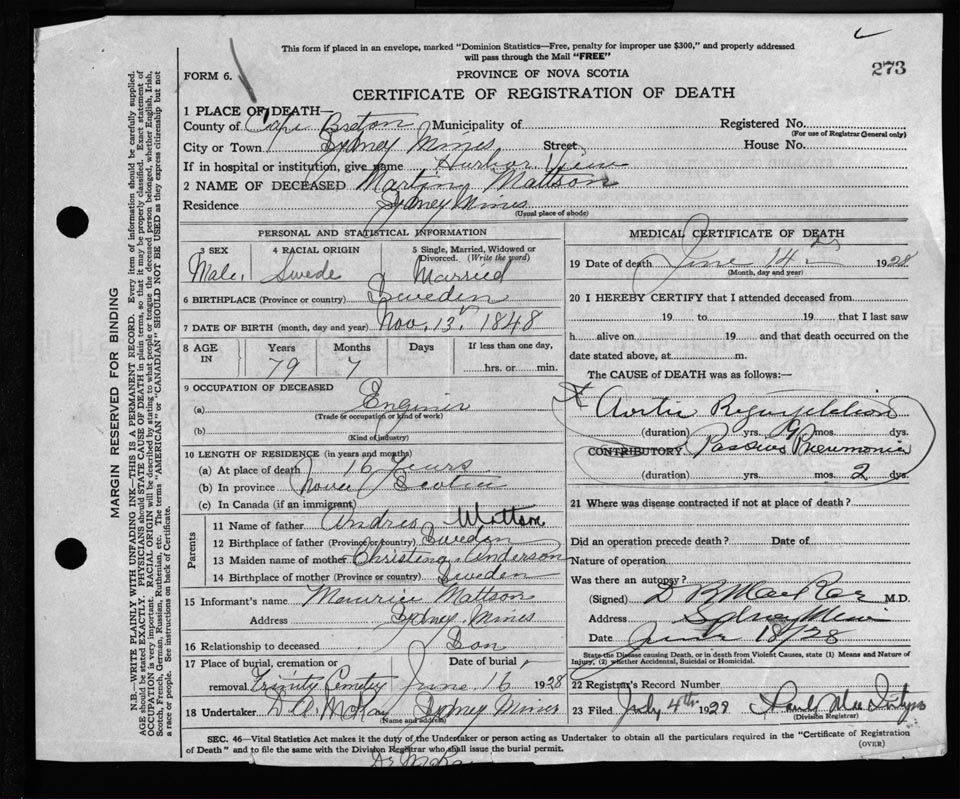 This form if placed in an envelope, marked "Dominion Statistics—Free, penalty for improper use $300," and properly addressed
will pass through the Mail "FREE"
273
FORM 6.
PROVINCE OF NOVA SCOTIA
CERTIFICATE OF REGISTRATION OF DEATH
1 PLACE OF DEATH
County of Cape Breton Municipality of Registered No.
(For use of Registrar General only)
City or Town Sydney Mines Street House No.
If in hospital or institution, give name Harbor View
2 NAME OF DECEASED Martin Mattson
Residence Sydney Mines
(Usual place of abode)
PERSONAL AND STATISTICAL INFORMATION
3 SEX 4 RACIAL ORIGIN 5 Single, Married, Widowed or
Divorced. (Write the word)
Male. Swede Married
6 BIRTHPLACE (Province or country) Sweden
7 DATE OF BIRTH (month, day and year) Nov. 13, 1848
8 AGE IN Years Months Days If less than one day,
79 7 hrs. or min.
9 OCCUPATION OF DECEASED
(a) Enginir
(Trade or occupation or kind of work)
(b)
(Kind of industry)
10 LENGTH OF RESIDENCE (in years and months)
(a) At place of death 16 years
(b) In province Nova Scotia
(c) In Canada (if an immigrant)
Parents
11 Name of father Andres Mattson
12 Birthplace of father (Province or country) Sweden
13 Maiden name of mother Christena Anderson
14 Birthplace of mother (Province or country) Sweden
15 Informant's name Maurice Mattson
Address Sydney Mines
16 Relationship to deceased Son
17 Place of burial, cremation or Date of burial
removal Trinity Cemetery June 16 1928
18 Undertaker D. A. McKay Sydney Mines
(Name and address)
MEDICAL CERTIFICATE OF DEATH
19 Date of death June 14 1928
(Month, day and year)
20 I HEREBY CERTIFY that I attended deceased from
19 to 19 that I last saw
h alive on 19 and that death occurred on the
date stated above, at m.
The CAUSE of DEATH was as follows—
Aortic Regurgitation
(duration) yrs. 9 mos. dys.
CONTRIBUTORY Passive Pneumonia
(duration) yrs. mos. 2 dys.
21 Where was disease contracted if not at place of death?
Did an operation precede death? Date of
Nature of operation
Was there an autopsy?
(Signed) M.D.
Address Sydney Mines
Date June 18/28
State the Disease causing Death, or in death from Violent Causes, state (1) Means and Nature of
Injury, (2) whether Accidental, Suicidal or Homicidal.
22 Registrar's Record Number
23 Filed July 4th 1928
(Division Registrar)
SEC. 46—Vital Statistics Act makes it the duty of the Undertaker or person acting as Undertaker to obtain all the particulars required in the "Certificate of Registration
of Death" and to file the same with the Division Registrar who shall issue the burial permit. (OVER)
MARGIN RESERVED FOR BINDING
N.B.—WRITE PLAINLY WITH UNFADING INK—THIS IS A PERMANENT RECORD. Every item of information should be carefully supplied.
AGE should be stated EXACTLY. PHYSICIANS should STATE CAUSE OF DEATH in plain terms, so that it may be properly classified. Exact statement of
OCCUPATION is very important. RACIAL ORIGIN will be described by stating to what people or tongue the deceased person belonged, whether English, Irish,
Scotch, French, German, Russian, Ruthenian, etc. The terms "AMERICAN" or "CANADIAN" SHOULD NOT BE USED as they express citizenship but not
a race or people. See instructions on back of Certificate.